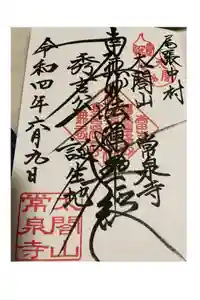 尾張中村
太閤山
常泉寺
南無妙法蓮華経
秀吉公誕生地
令和四年六月九日
太閤山
常泉寺